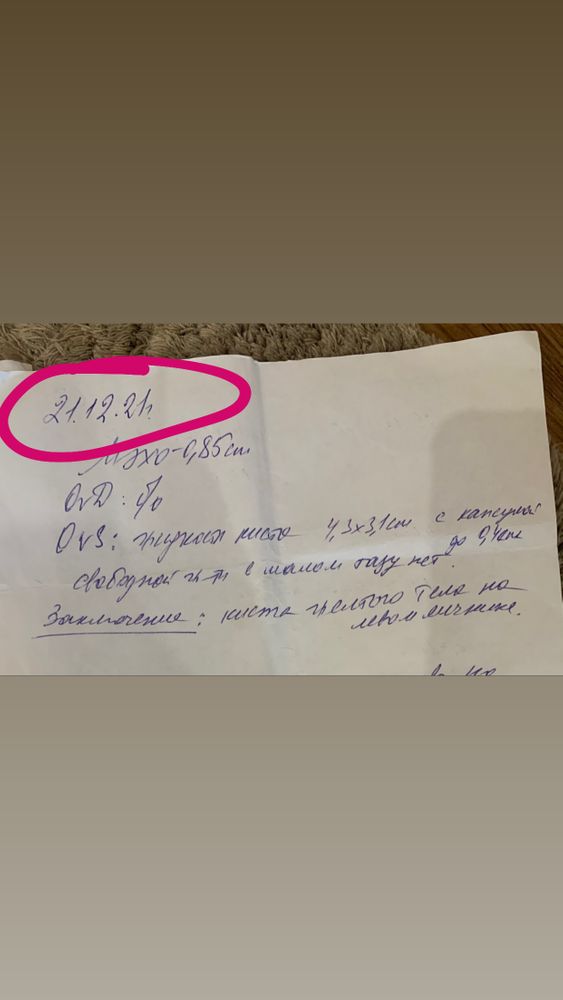 21.12.21г.
Мэхо-0,85см
OvD: б/о
OvS: жидкост киста 4,3х3,1см с капсулой
до 0,4см
свободной ж-ти в малом тазу нет.
Заключение: киста желтого тела на
левом яичнике.